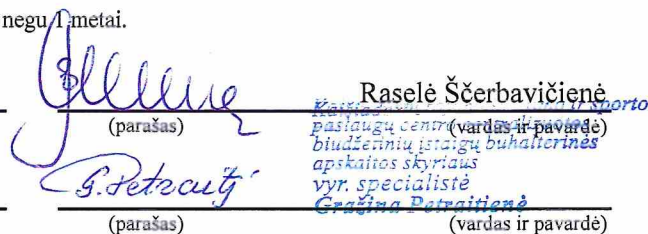 negu 1 metai.
Raselė Ščerbavičienė
(parašas) (vardas ir pavardė)
sporto
paslaugų centro
biudžetinių įstaigų buhalterinės
apskaitos skyriaus
vyr. specialistė
G. Petraitį
Gražina Petraitienė
(parašas) (vardas ir pavardė)